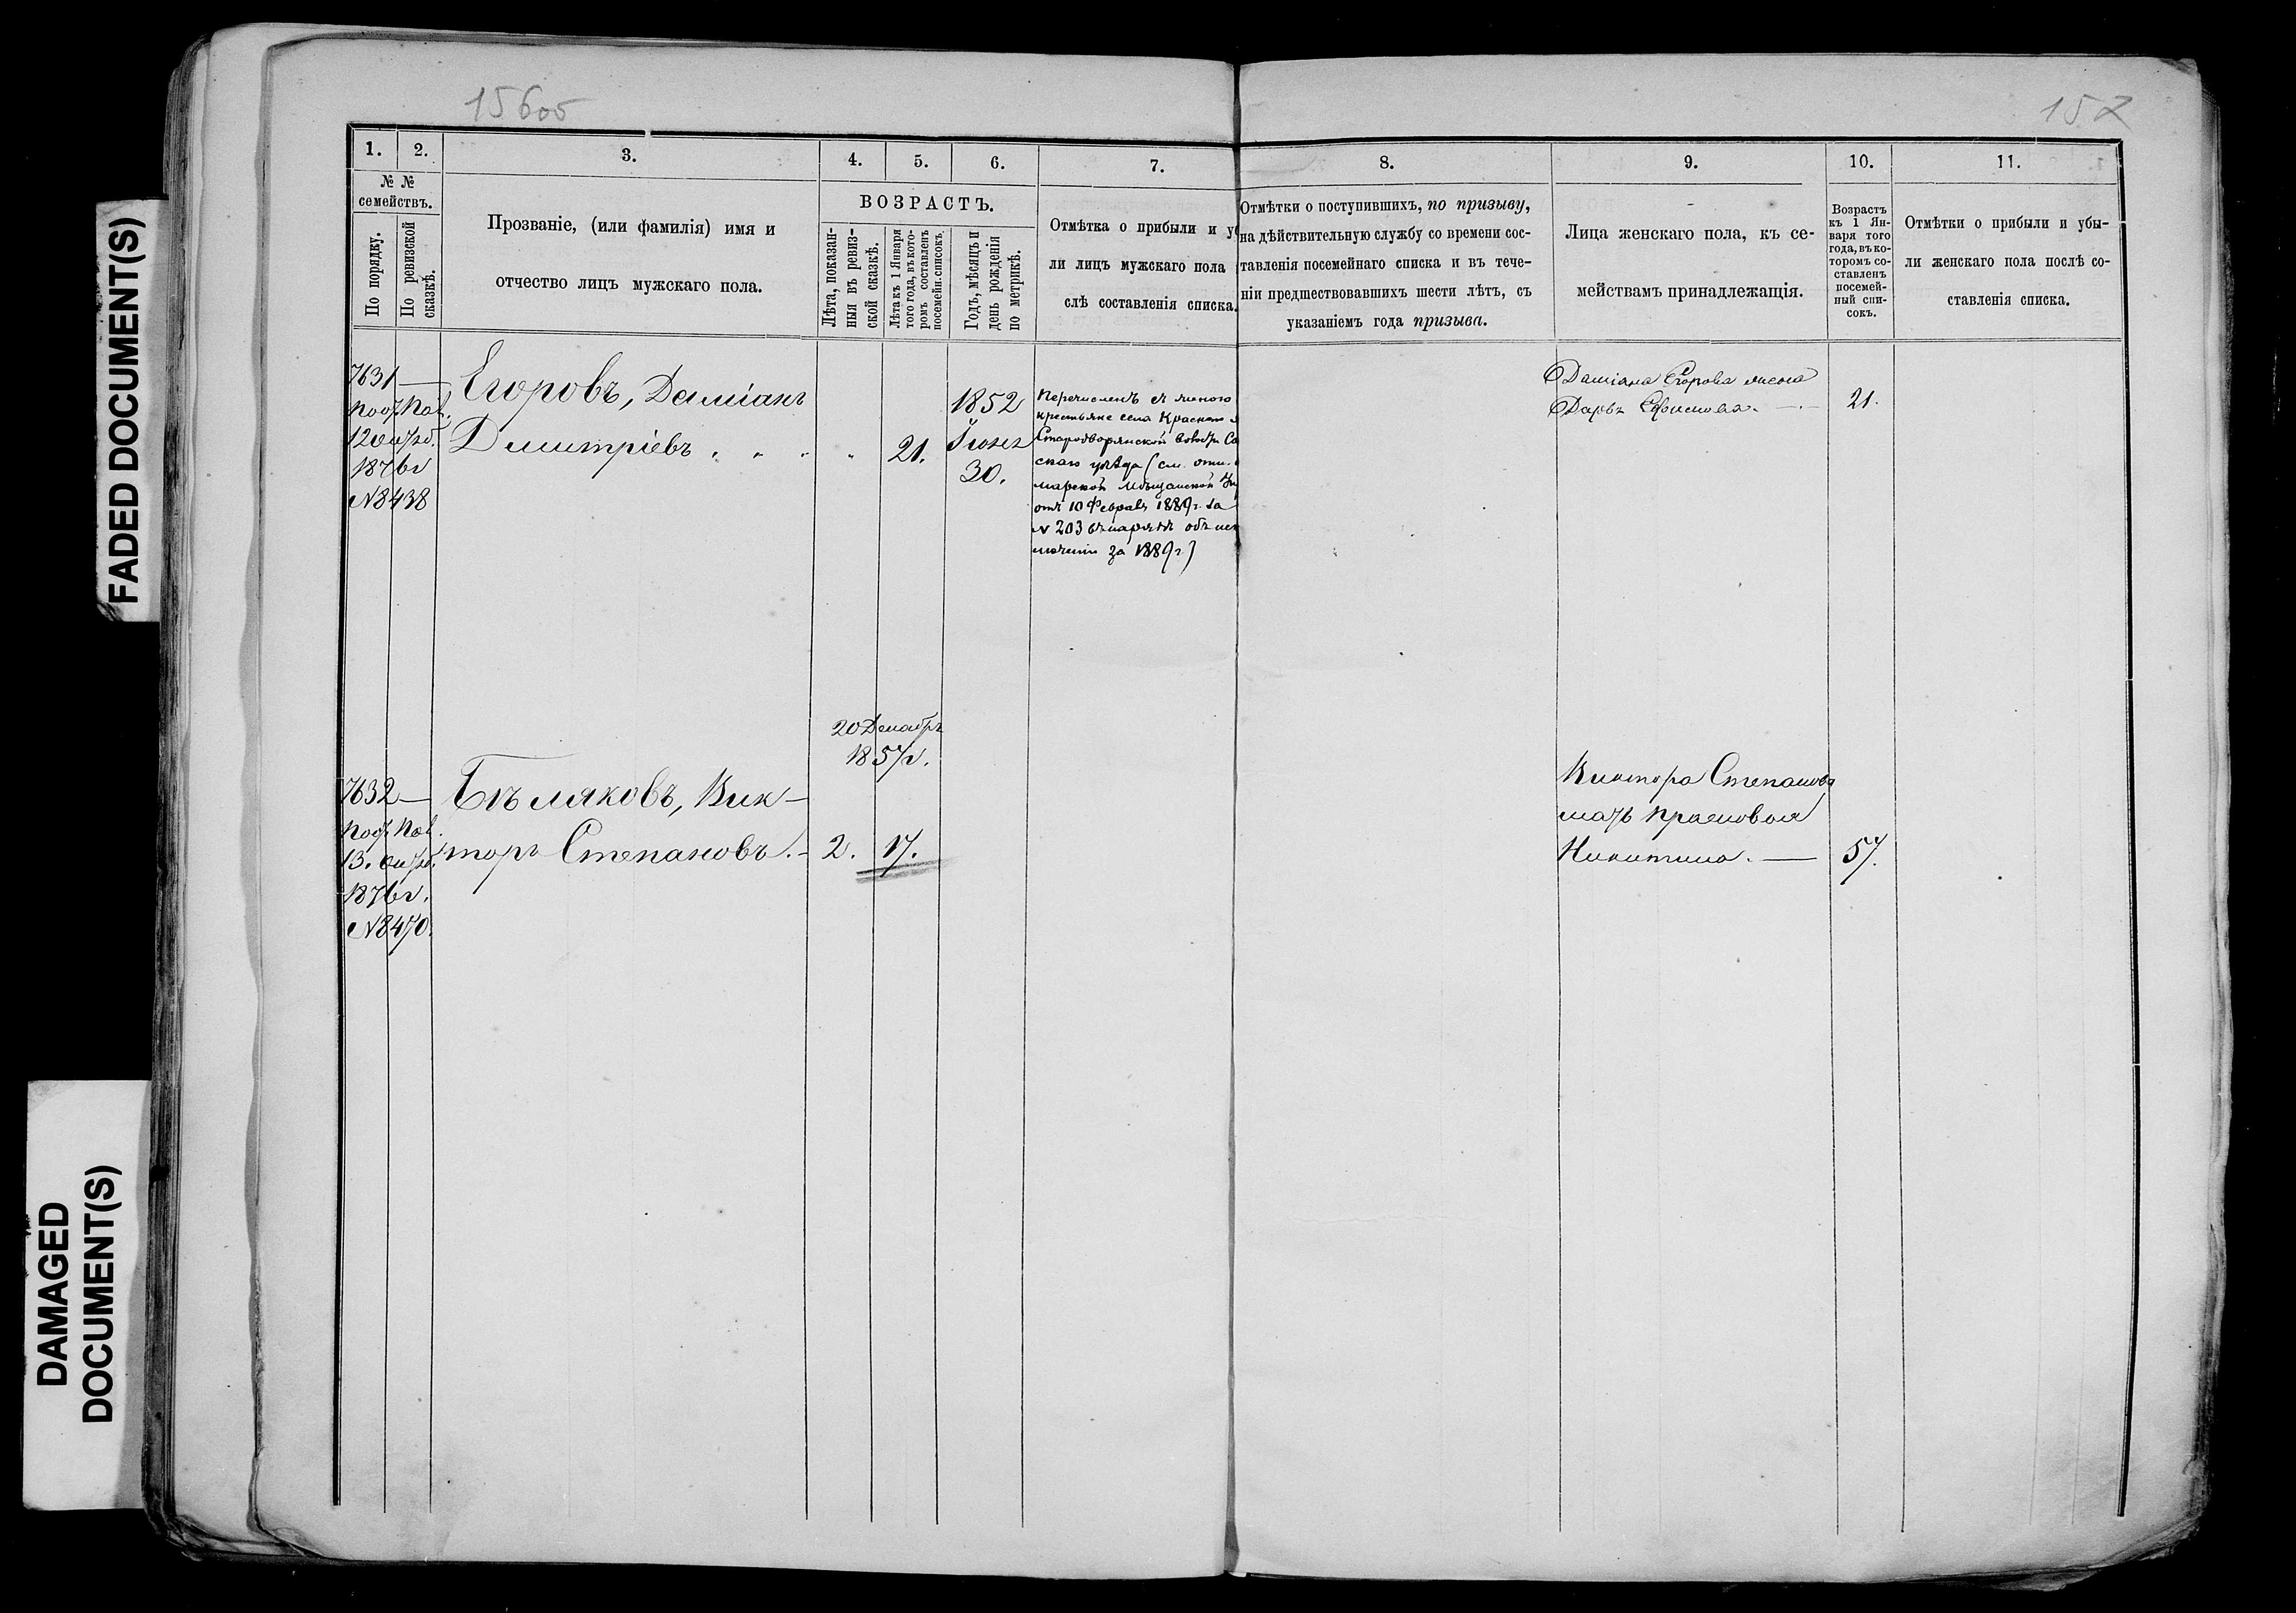 156об
157
FADED DOCUMENT(S)
DAMAGED
DOCUMENT(S)
1.
2.
3.
4.
5.
6.
7.
№ №
семействъ.
По порядку.
По ревизской
сказкѣ.
Прозваніе, (или фамилія) имя и
отчество лицъ мужскаго пола.
ВОЗРАСТЪ.
Лѣта, показан-
ныя въ ревиз-
ской сказкѣ.
Лѣта къ 1 Января
того года, въ кото-
ромъ составленъ
посемейн. списокъ.
Годъ, мѣсяцъ и
день рожденія
по метрикѣ.
Отмѣтка о прибыли и у
ли лицъ мужскаго пола
слѣ составленія списка.
8.
9.
10.
11.
Отмѣтки о поступившихъ, по призыву,
на дѣйствительную службу со времени сос-
тавленія посемейнаго списка и въ тече-
ніи предшествовавшихъ шести лѣтъ, съ
указаніемъ года призыва.
Лица женскаго пола, къ се-
мействамъ принадлежащія.
Возрастъ
къ 1 Ян-
варя того
года, въ ко-
торомъ со-
ставленъ
посемей-
ный спи-
сокъ.
Отмѣтки о прибыли и убы-
ли женскаго пола послѣ со-
ставленія списка.
7631 —
12
1876 г
№ 8438
Егоровъ, Даміанъ
Дмитріевъ
21.
1852
30.
Перечисленъ съ женою
крестьяне села Краснаго
Стародворянской волости Са
скаго уѣзда (см. отн.
марской Мѣщанской Уп
отъ 10 Февраля 1889 г. за
№ 203 въ нарядѣ объ иск
люченіи за 1889 г)
Даміана Егорова жена
Дарья
21.
20 Декабря
1857 г.
7632 —
13.
1876 г.
№ 8470.
Бѣляковъ, Вик-
торъ Степановъ. -
2.
17.
Виктора Степанова
мать Прасковья
Никитина. —
57.